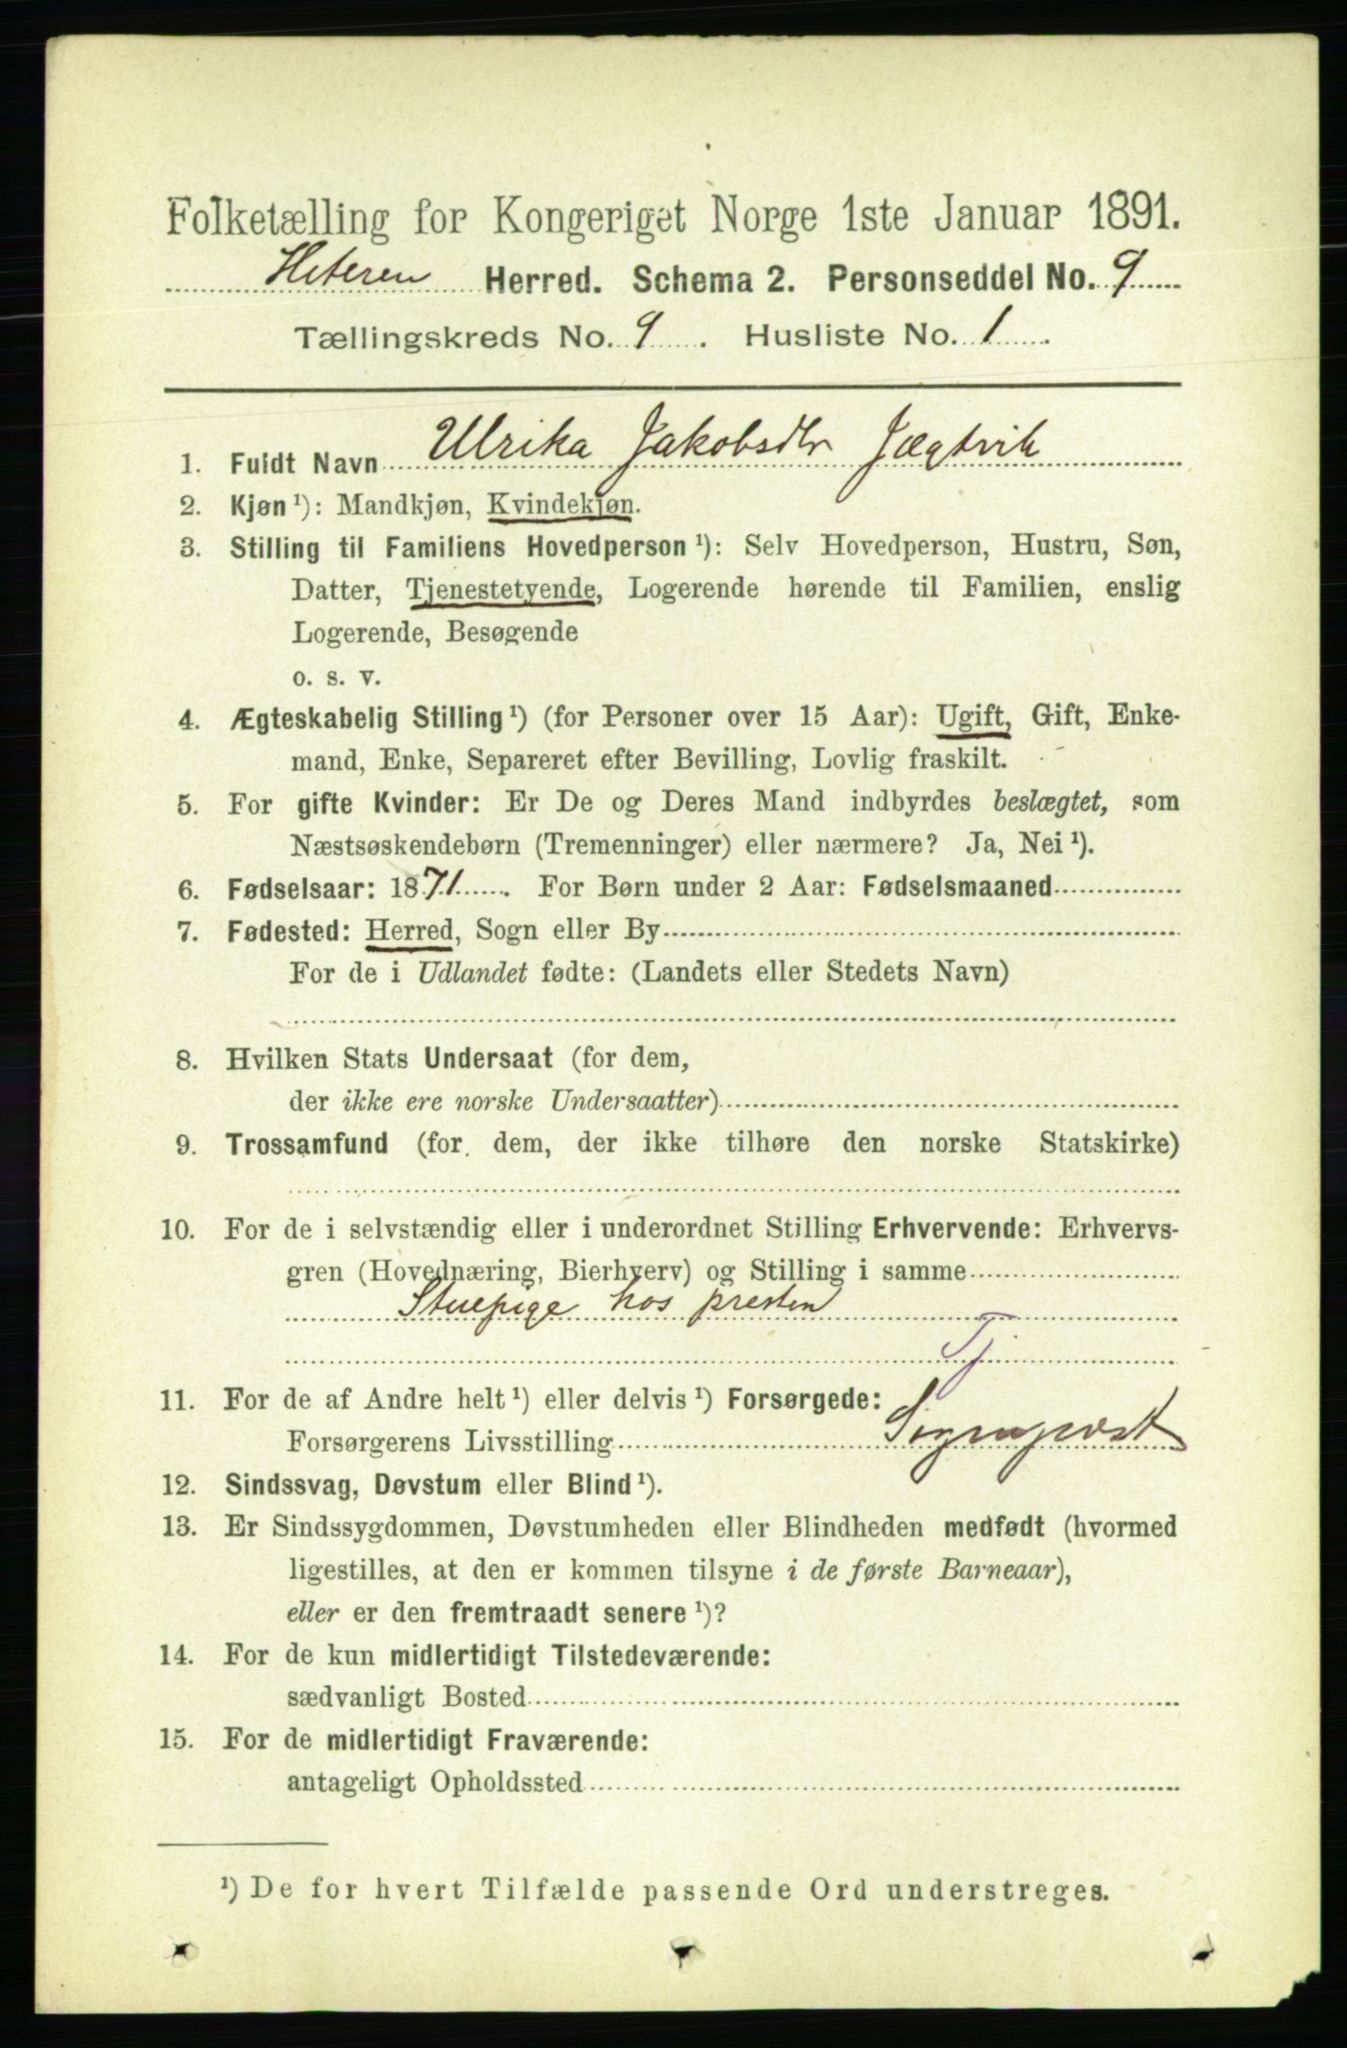 Folketælling for Kongeriget Norge 1ste Januar 1891.
Hiteren Herred. Schema 2. Personseddel No. 9
Tællingskreds No. 9. Husliste No. 1.
1. Fuldt Navn Ulrika Jakobsdtr Jægtvik
2. Kjøn ¹): Mandkjøn, Kvindekjøn.
3. Stilling til Familiens Hovedperson ¹): Selv Hovedperson, Hustru, Søn,
Datter, Tjenestetyende, Logerende hørende til Familien, enslig
Logerende, Besøgende
o. s. v.
4. Ægteskabelig Stilling ¹) (for Personer over 15 Aar): Ugift, Gift, Enke-
mand, Enke, Separeret efter Bevilling, Lovlig fraskilt.
5. For gifte Kvinder: Er De og Deres Mand indbyrdes beslægtet, som
Næstsøskendebørn (Tremenninger) eller nærmere? Ja, Nei ¹).
6. Fødselsaar: 1871. For Børn under 2 Aar: Fødselsmaaned
7. Fødested: Herred, Sogn eller By
For de i Udlandet fødte: (Landets eller Stedets Navn)
8. Hvilken Stats Undersaat (for dem,
der ikke ere norske Undersaatter)
9. Trossamfund (for dem, der ikke tilhøre den norske Statskirke)
10. For de i selvstændig eller i underordnet Stilling Erhvervende: Erhvervs-
gren (Hovednæring, Bierhverv) og Stilling i samme
Stuepige hos presten
Tj
11. For de af Andre helt ¹) eller delvis ¹) Forsørgede:
Forsørgerens Livsstilling Sogneprest
12. Sindssvag, Døvstum eller Blind ¹).
13. Er Sindssygdommen, Døvstumheden eller Blindheden medfødt (hvormed
ligestilles, at den er kommen tilsyne i de første Barneaar),
eller er den fremtraadt senere ¹)?
14. For de kun midlertidigt Tilstedeværende:
sædvanligt Bosted
15. For de midlertidigt Fraværende:
antageligt Opholdssted
¹) De for hvert Tilfælde passende Ord understreges.